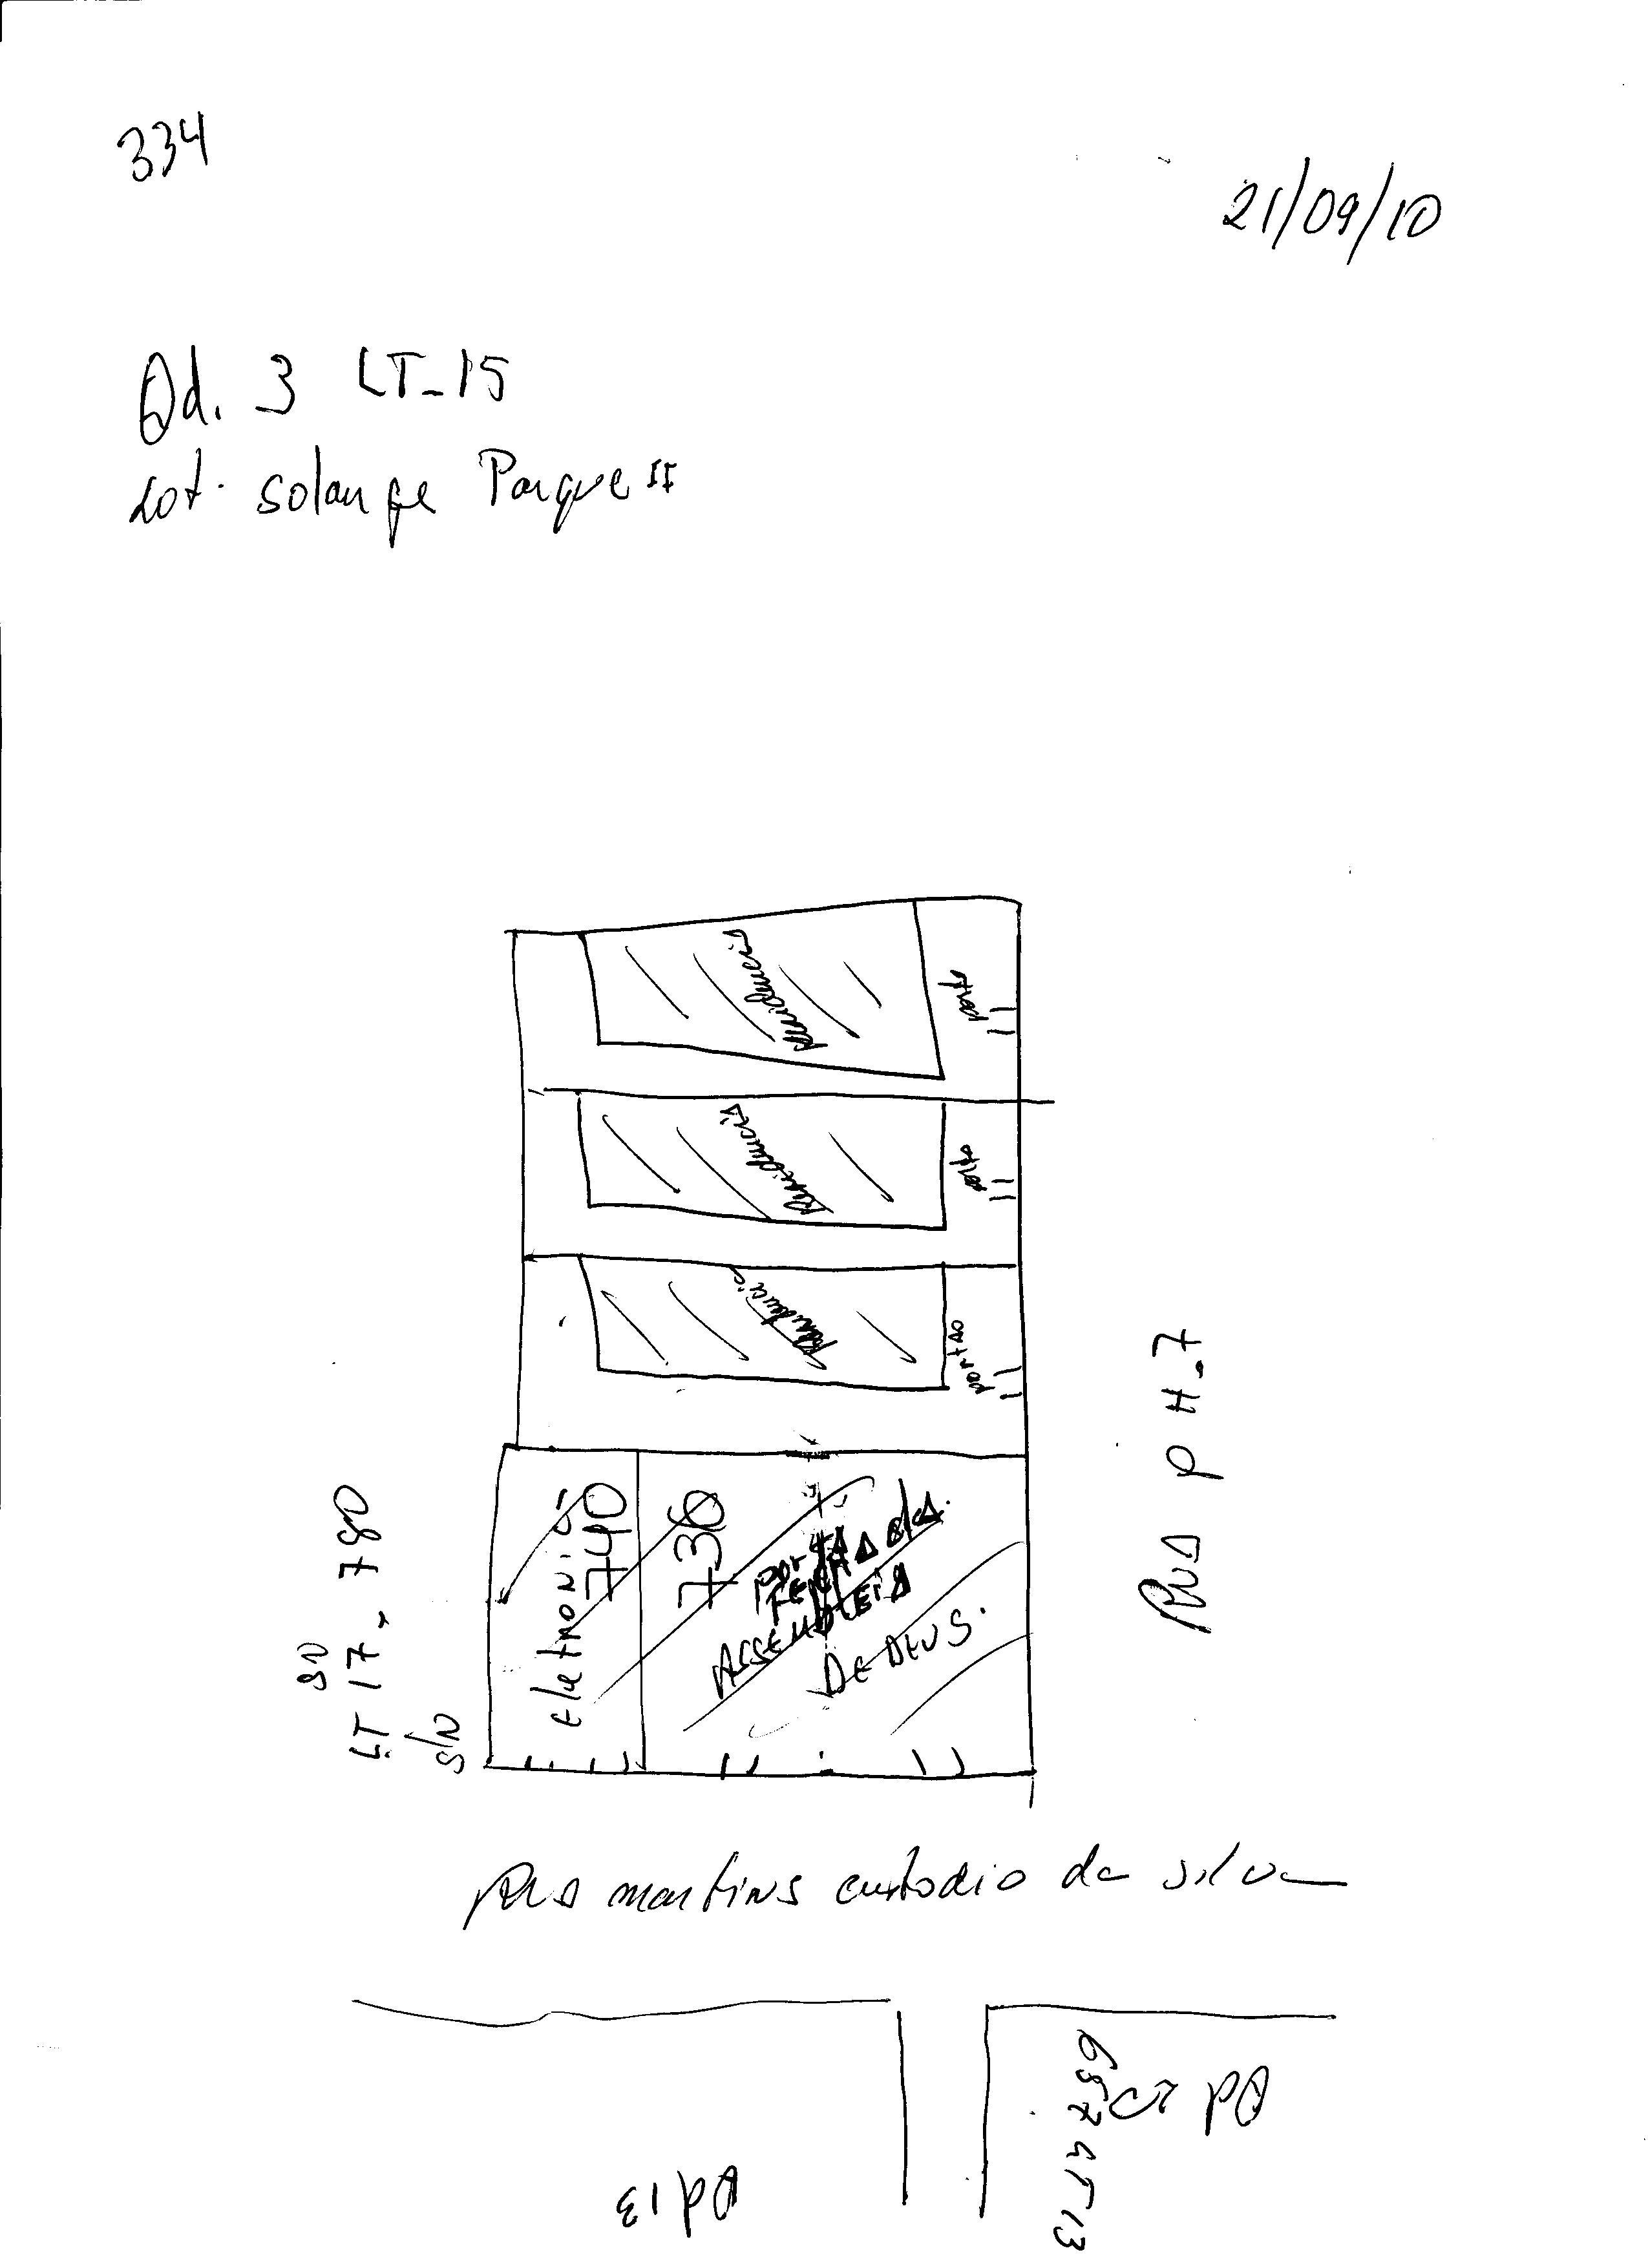 334
21/09/10
Qd. 3 LT-15
Lot. solange Parque II
Residencia
portão
Residencia
portão
Residencia
portão
Eletronica
740
736
porta
ASSEMBLEIA
DE DEUS.
LT 17 - 780
S/N
RUA PH-7
Rua martins custodio da silva
Qd 13
Qd
LT 13